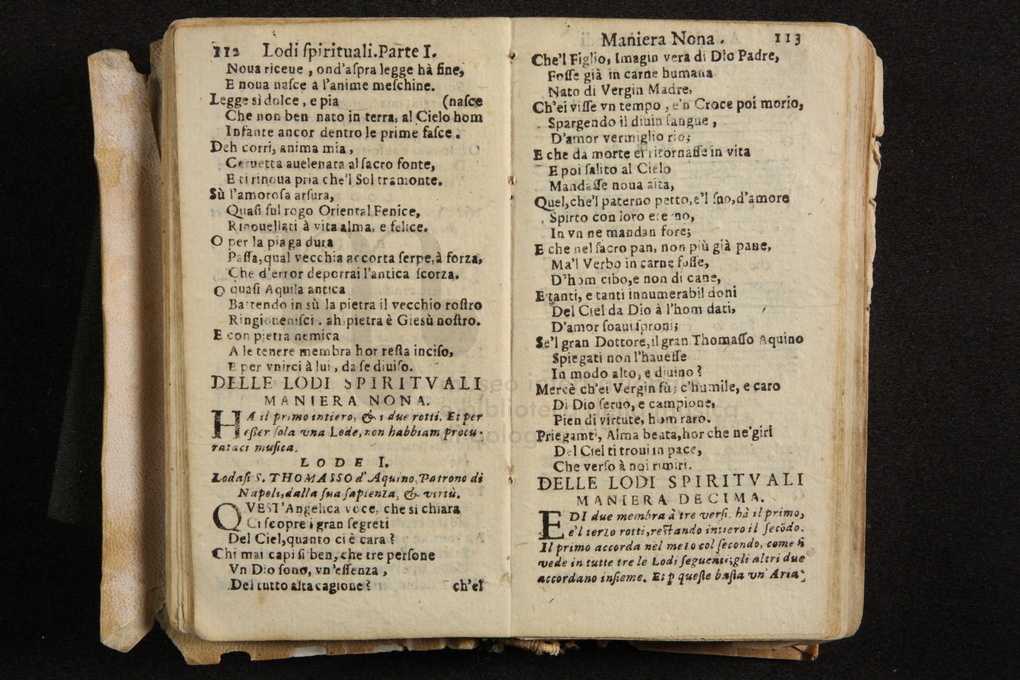 112 Lodi ſpirituali. Parte I.
Noua riceue, ond'aſpra legge hà fine,
E noua naſce a l'anime meſchine.
Legge sì dolce, e pia (naſce
Che non ben nato in terra, al Cielo hom
Infante ancor dentro le prime faſce.
Deh corri, anima mia,
Ceruetta auelenata al ſacro fonte,
E ti rinoua pria che'l Sol tramonte.
Sù l'amoroſa arſura,
Quaſi ſul rogo Oriental Fenice,
Rinouellati à vita alma, e felice.
O per la piaga dura
Paſſa, qual vecchia accorta ſerpe, à forza,
Che d'error deporrai l'antica ſcorza.
O quaſi Aquila antica
Battendo in sù la pietra il vecchio roſtro
Ringioueniſci, ah pietra è Giesù noſtro.
E con pietra nemica
A le tenere membra hor reſta inciſo,
E per vnirci à lui, da ſe diuiſo.
DELLE LODI SPIRITVALI
MANIERA NONA.
HA il primo intiero, & i due rotti. Et per
eſſer ſola vna Lode, non habbiam procu-
rataci muſica.
LODE I.
Lodaſi S. THOMASSO d'Aquino, Patrono di
Napoli, dalla ſua ſapienza, & virtù.
QVEST'Angelica voce, che sì chiara
Ci ſcopre i gran ſegreti
Del Ciel, quanto ci è cara?
Chi mai capì sì ben, che tre perſone
Vn Dio ſono, vn'eſſenza,
Del tutto alta cagione? ch'el
Maniera Nona. 113
Che'l Figlio, Imagin vera di Dio Padre,
Foſſe già in carne humana
Nato di Vergin Madre,
Ch'ei viſſe vn tempo, e'n Croce poi morio,
Spargendo il diuin ſangue,
D'amor vermiglio rio;
E che da morte ei ritornaſſe in vita
E poi ſalito al Cielo
Mandaſſe noua aita,
Quel, che'l paterno petto, e'l ſuo, d'amore
Spirto con loro eterno,
In vn ne mandan fore;
E che nel ſacro pan, non più già pane,
Ma'l Verbo in carne foſſe,
D'hom cibo, e non di cane,
E tanti, e tanti innumerabil doni
Del Ciel da Dio à l'hom dati,
D'amor ſoaui ſproni;
Se'l gran Dottore, il gran Thomaſſo Aquino
Spiegati non l'haueſſe
In modo alto, e diuino?
Mercè ch'ei Vergin fù; c'humile, e caro
Di Dio ſeruo, e campione,
Pien di virtute, hom raro.
Priegamti, Alma beata, hor che ne'giri
Del Ciel ti troui in pace,
Che verſo à noi rimiri.
DELLE LODI SPIRITVALI
MANIERA DECIMA.
EDI due membra à tre verſi. hà il primo,
e'l terzo rotti, reſtando intiero il ſecōdo.
Il primo accorda nel mezo col ſecondo, come ſi
vede in tutte tre le Lodi ſeguenti; gli altri due
accordano inſieme. Et p queſte baſta vn'Aria;